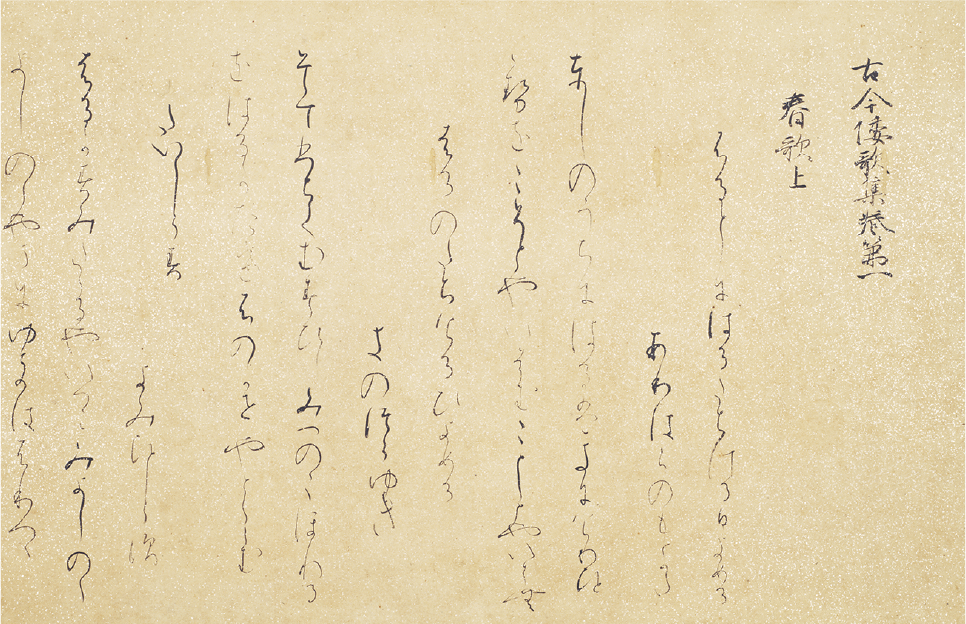 古今倭歌集巻第一
春歌上
ふるとしにはるたちける日よめる
ありはらのもとかた
としのうちにはるはきにけりひと
せをこそとやいはむことしとやいはむ
はるのたちけるひよめる
きのつらゆき
そてひちてむすひしみつのこほれる
をはるかたけふのかせやとくらむ
たいしらす
よみひとしらす
はるかすみたてるやいつこみよしのゝ
よしのゝやまにゆきはふりつゝ